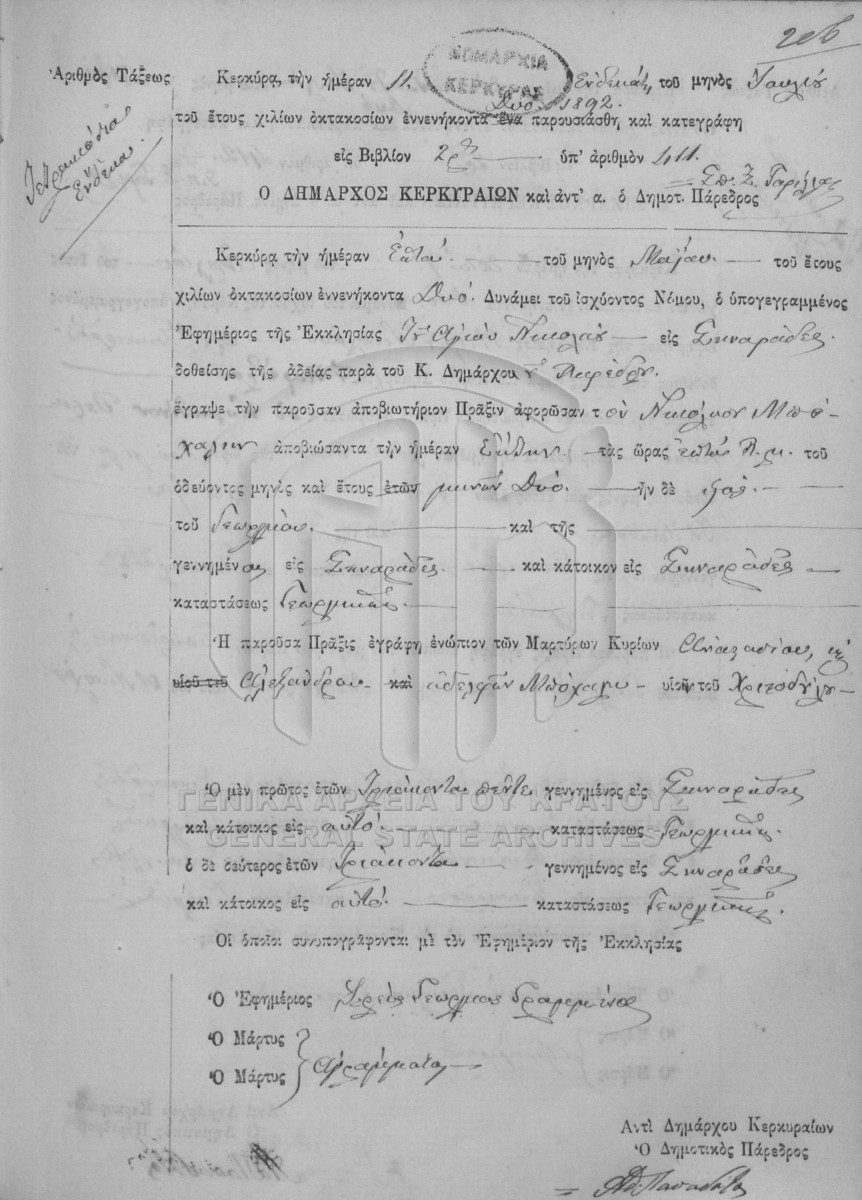 206
ΝΟΜΑΡΧΙΑ
ΚΕΡΚΥΡΑΣ
Ἀριθμὸς Τάξεως
Τετρακόσια
Ἕνδεκα
Κερκύρᾳ, τὴν ἡμέραν 11 Ἑνδεκάτη τοῦ μηνὸς Ἰουλίου
Δύο 1892.
τοῦ ἔτους χιλίων ὀκτακοσίων ἐννενήκοντα ἕνα παρουσιάσθη καὶ κατεγράφη
εἰς Βιβλίον 2ον ὑπ' ἀριθμὸν 411
Ο ΔΗΜΑΡΧΟΣ ΚΕΡΚΥΡΑΙΩΝ καὶ ἀντ' α. ὁ Δημοτ. Πάρεδρος
Κερκύρᾳ τὴν ἡμέραν Ἑπτά τοῦ μηνὸς Μαΐου τοῦ ἔτους
χιλίων ὀκτακοσίων ἐννενήκοντα Δύο. Δυνάμει τοῦ ἰσχύοντος Νόμου, ὁ ὑπογεγραμμένος
Ἐφημέριος τῆς Ἐκκλησίας Ἁγίου Νικολάου εἰς Σιναράδες
δοθείσης τῆς ἀδείας παρὰ τοῦ Κ. Δημάρχου Παρέδρου
ἔγραψε τὴν παροῦσαν ἀποβιωτήριον Πρᾶξιν ἀφορῶσαν τὸν Νικόλαον Μπό-
χαλην ἀποβιώσαντα τὴν ἡμέραν τὰς ὥρας ἑπτὰ π.μ. τοῦ
ὁδεύοντος μηνὸς καὶ ἔτους ἐτῶν μηνῶν Δύο. ἦν δὲ
τοῦ Γεωργίου. καὶ τῆς
γεννημένον εἰς Σιναράδες καὶ κάτοικον εἰς Σιναράδες
καταστάσεως Γεωργικῆς.
Ἡ παροῦσα Πρᾶξις ἐγράφη ἐνώπιον τῶν Μαρτύρων Κυρίων Ἀναστασίου,
υἱοῦ τοῦ Ἀλεξάνδρου καὶ ἀδελφῶν Μπόχαλη υἱῶν τοῦ Χριστοδούλου
Ὁ μὲν πρῶτος ἐτῶν Τριάκοντα πέντε γεννημένος εἰς Σιναράδες
ΓΕΝΙΚΑ ΑΡΧΕΙΑ ΤΟΥ ΚΡΑΤΟΥΣ
καὶ κάτοικος εἰς αὐτό. καταστάσεως Γεωργικῆς.
GENERAL STATE ARCHIVES
ὁ δὲ δεύτερος ἐτῶν Τριάκοντα γεννημένος εἰς Σιναράδες
καὶ κάτοικος εἰς αὐτό. καταστάσεως Γεωργικῆς.
Οἱ ὁποῖοι συνυπογράφονται μὲ τὸν Ἐφημέριον τῆς Ἐκκλησίας
Ὁ Ἐφημέριος Ἱερεὺς Γεώργιος Γραμμένος
Ὁ Μάρτυς
Ὁ Μάρτυς Ἀγράμματοι
Αντὶ Δημάρχου Κερκυραίων
Ὁ Δημοτικὸς Πάρεδρος